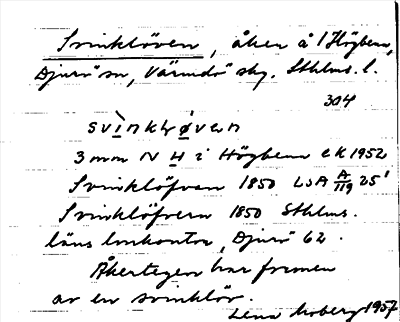 Svinklöven, åker å 1 Högben,
Djurö sn, Värmdö skg. Sthlms. l.
304
svìnkløven
3 mm N H i Högben ek 1952
Svinklöfvan 1850 LSA A/119 25¹
Svinklöfvern 1850 Sthlms.
läns lmkontor, Djurö 62.
Åkertegen har formen
av en svinklöv.
Lena Moberg 1957